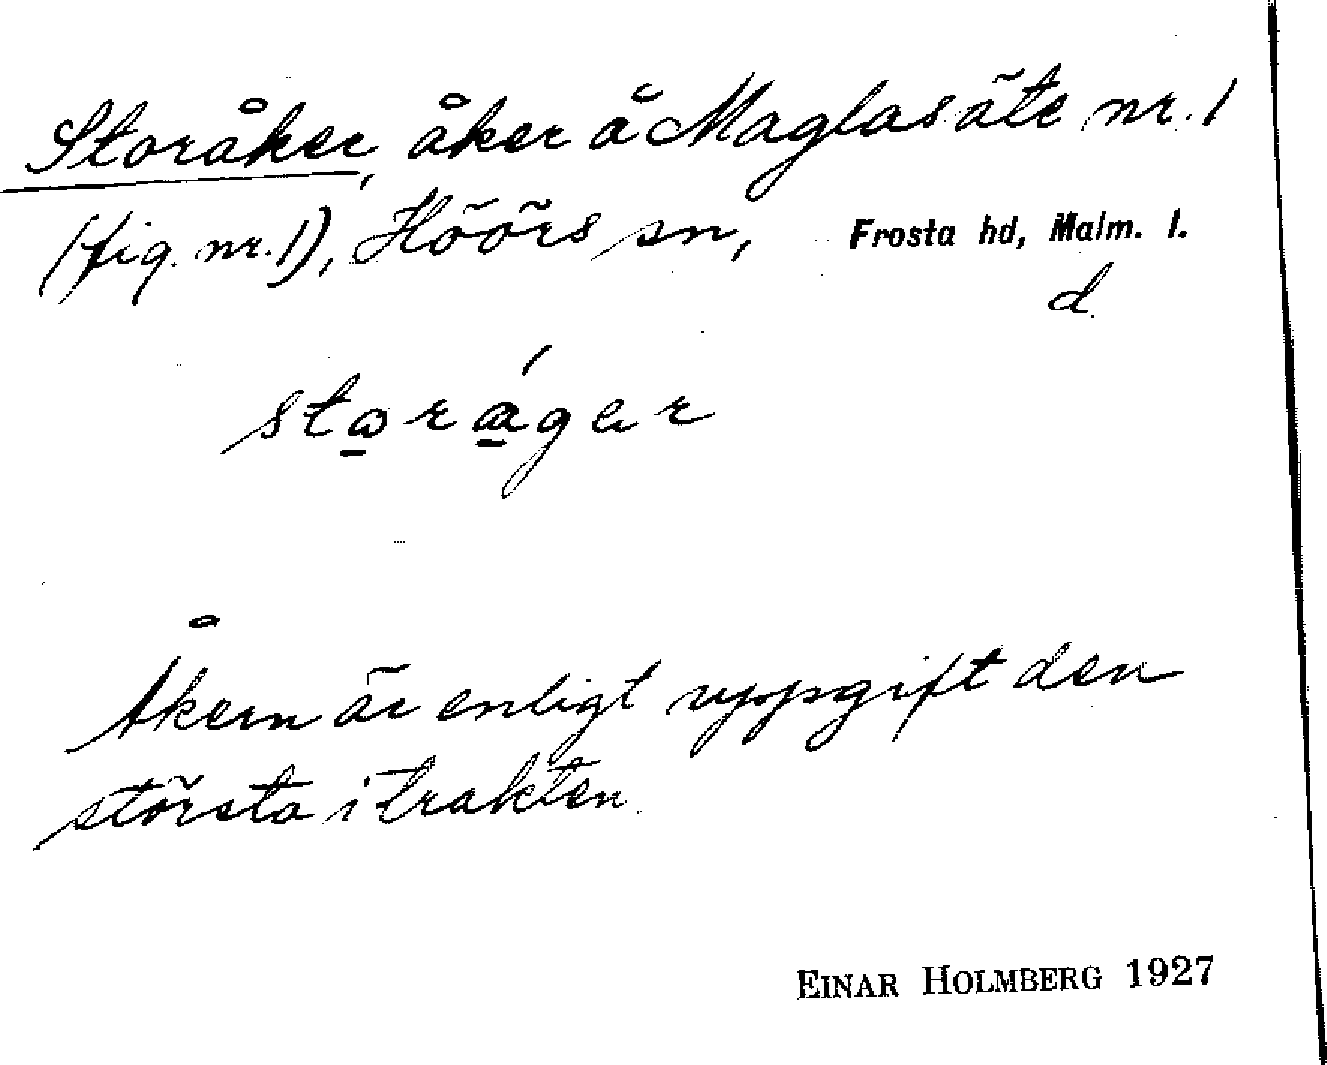 Storåker, åker å Maglasäte nr. 1
(fig. nr. 1), Höörs sn, Frosta hd, Malm. l.
d.
Åkern är enligt uppgift den
största i trakten.
EINAR HOLMBERG 1927